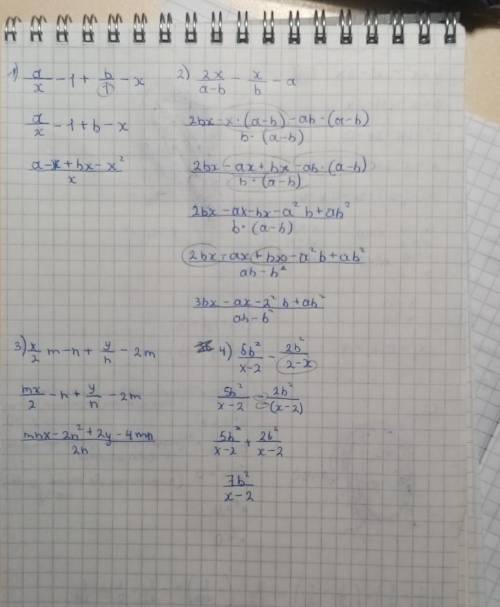 1) a/x - 1 + b/1 - x
a/x - 1 + b - x
(a - x + bx - x²)/x
2) 2x/(a-b) - x/b - a
(2bx - x · (a-b) - ab · (a-b))/(b · (a-b))
(2bx - ax + bx - ab · (a-b))/(b · (a-b))
(2bx - ax - bx - a²b + ab²)/(b · (a-b))
(2bx - ax + bx - a²b + ab²)/(ab - b²)
(3bx - ax - a²b + ab²)/(ab - b²)
3) x/2 m - n + y/n - 2m
mx/2 - n + y/n - 2m
(mnx - 2n² + 2y - 4mn)/2n
4) 5b²/(x-2) - 2b²/(2-x)
5b²/(x-2) - 2b²/-(x-2)
5b²/(x-2) + 2b²/(x-2)
7b²/(x-2)